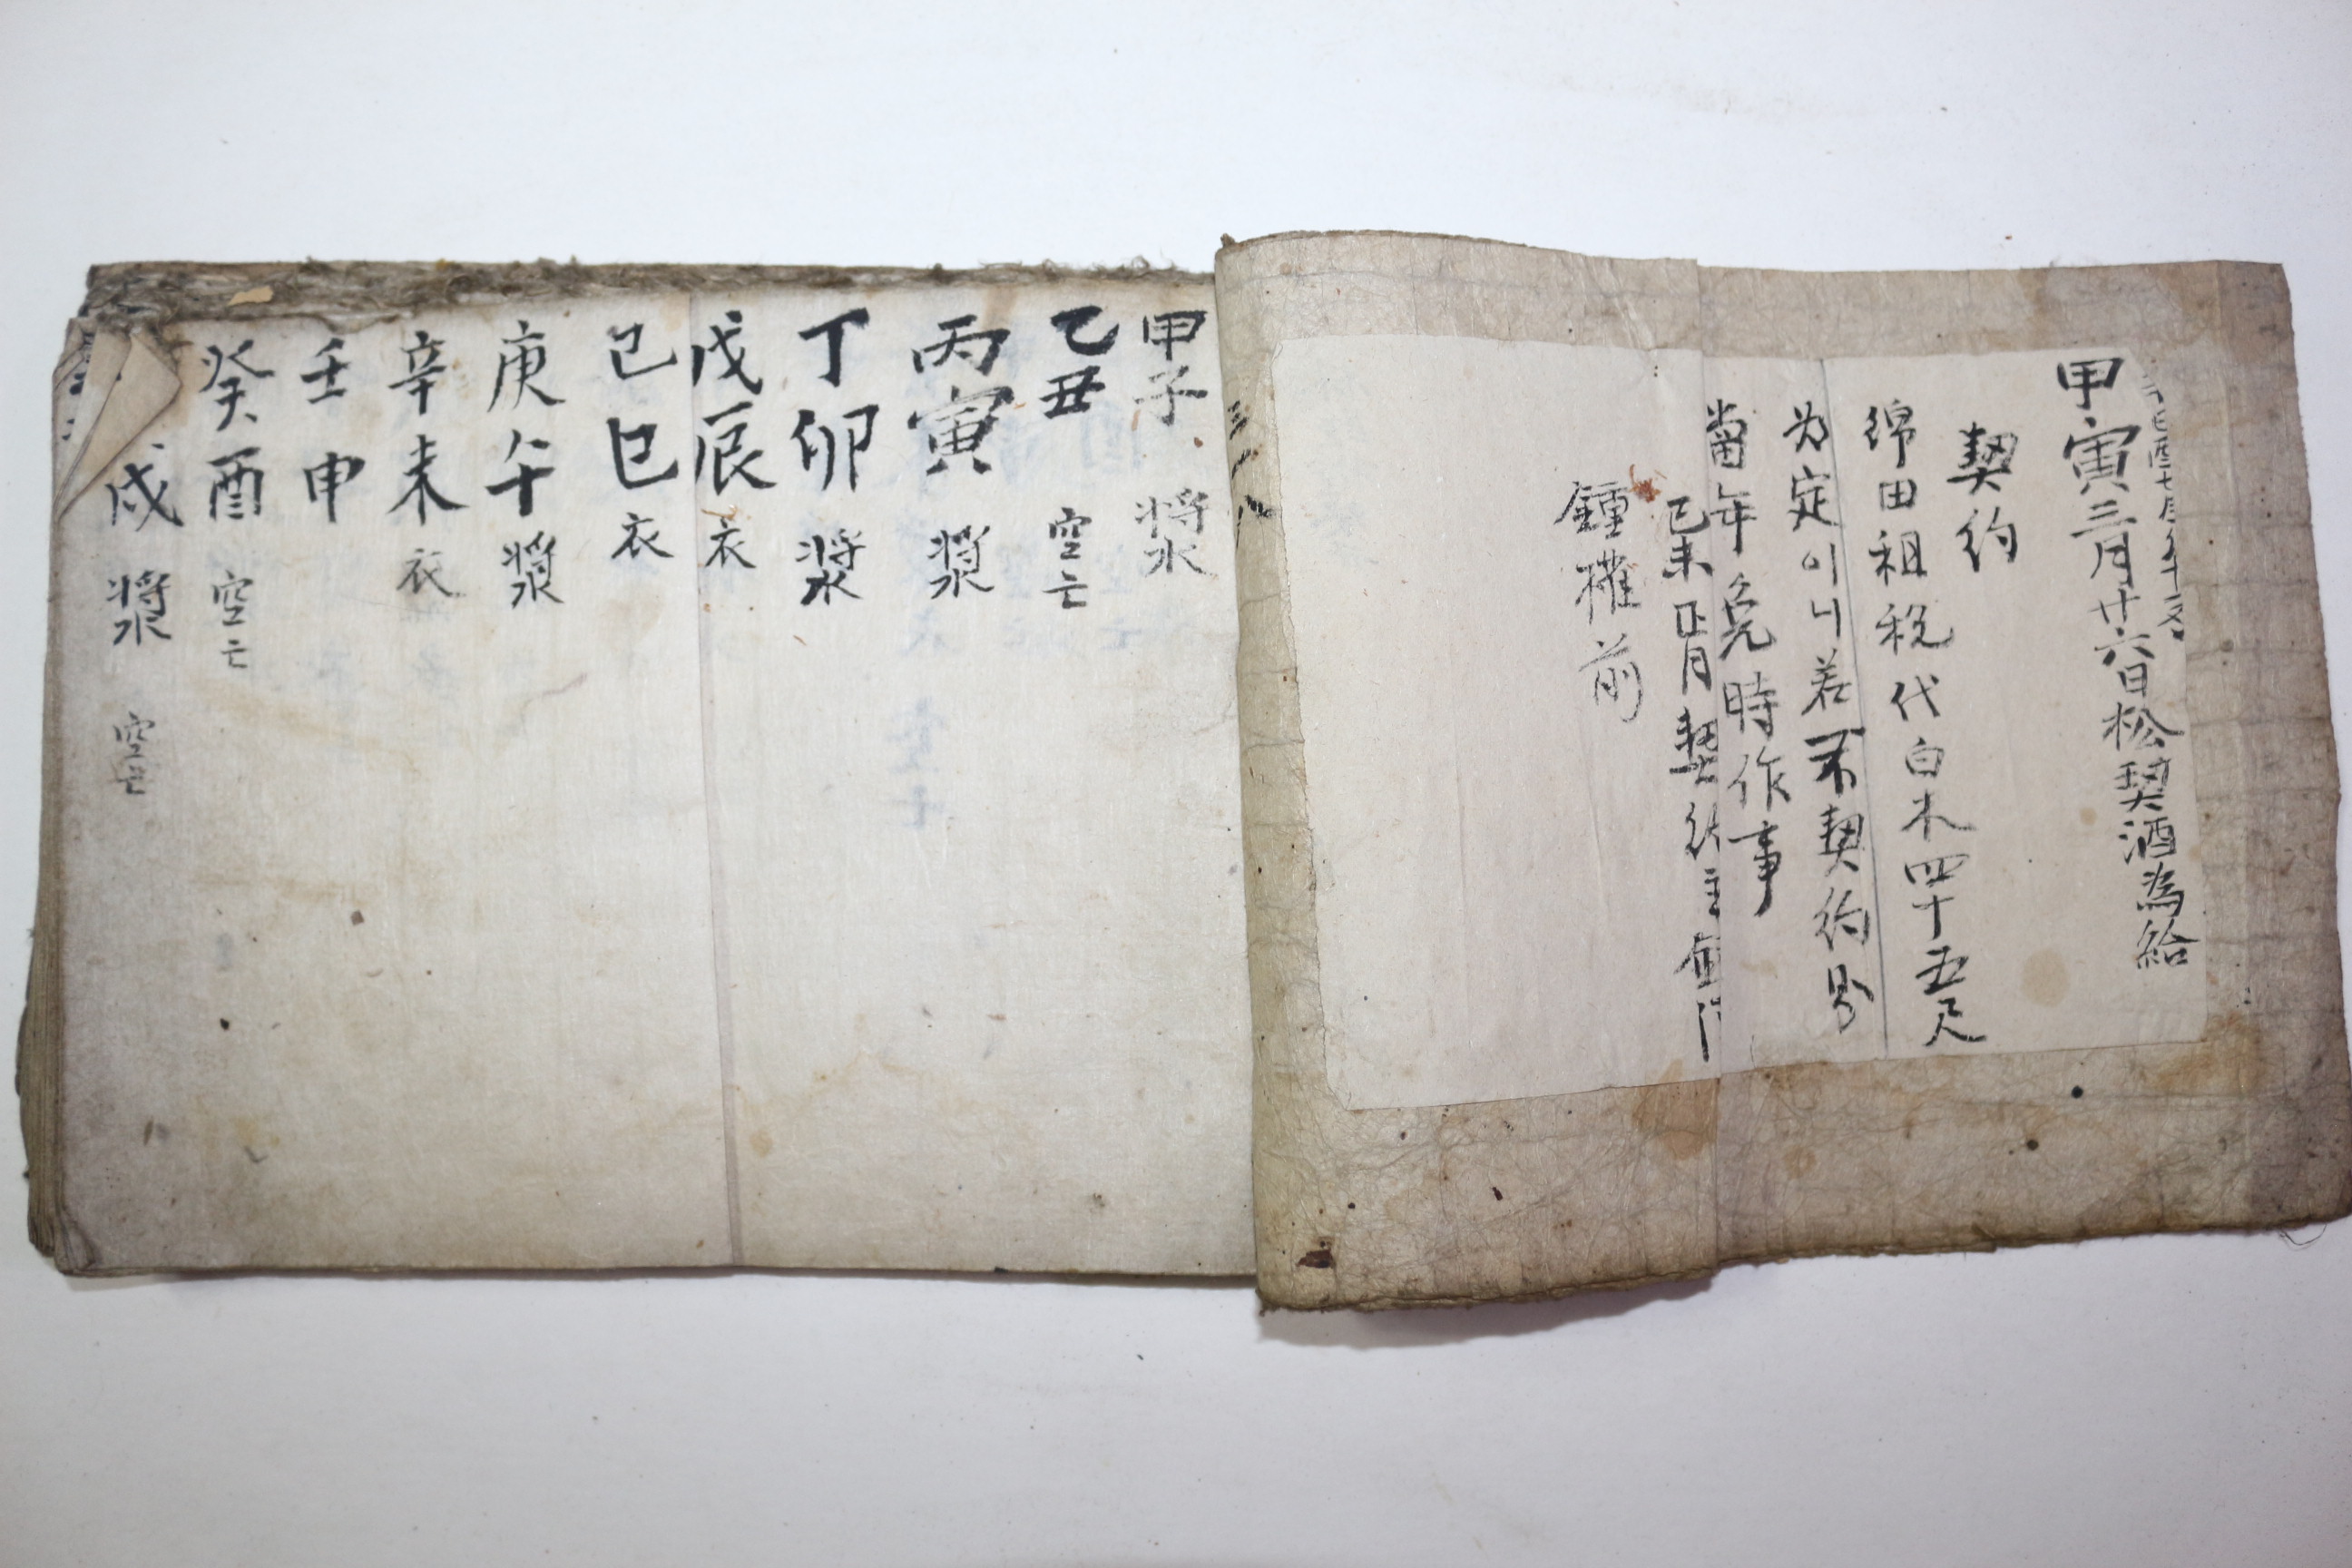 甲寅三月廿六日松契酒為給
契約
綿田租税代白木四十五尺
为定이니若不契約
當年免時作事
己未正月契約主
鍾權前
三
八
甲子 漿
乙丑 空亡
丙寅 漿
丁卯 漿
戊辰 衣
己巳 衣
庚午 漿
辛未 衣
壬申
癸酉 空亡
戌 漿 空亡